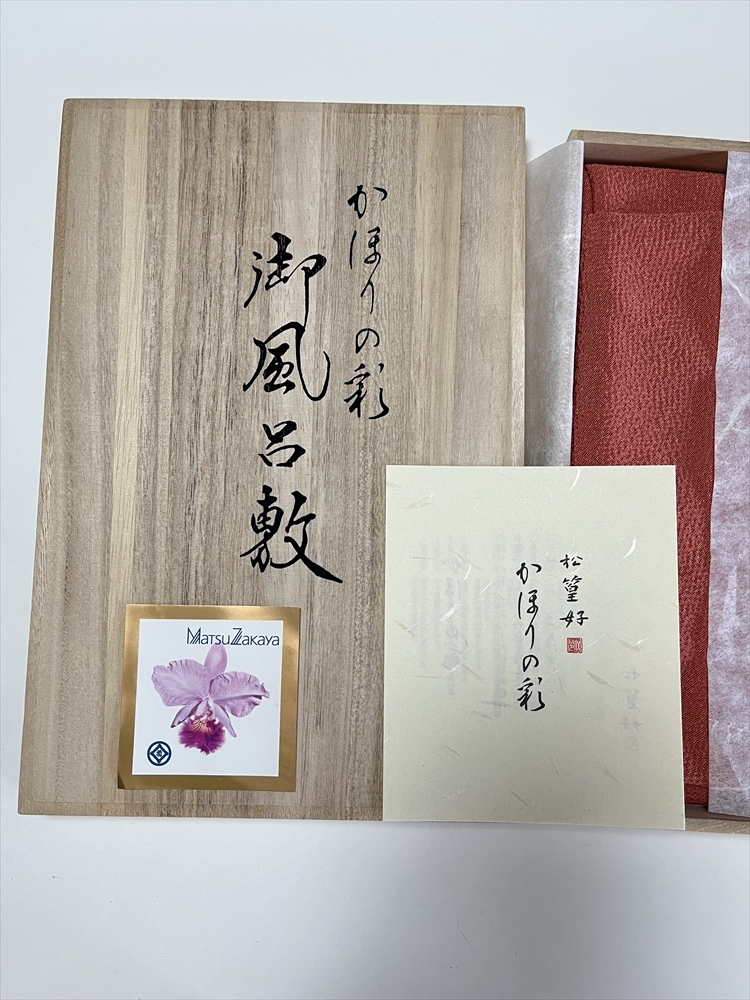 かほりの彩
御風呂敷
MatsuZakaya
松篁好
かほりの彩